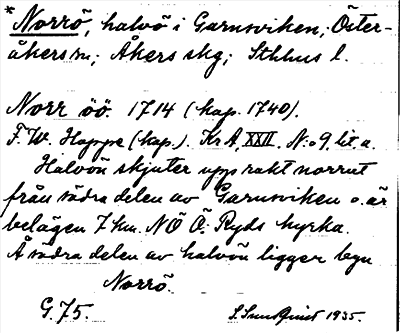 * Norrö, halvö i Garnsviken, Öster-
åkers sn; Åkers skg; Sthlms l.
Norr öö. 1714 (kop. 1740).
F. W. Hoppe (kop.). Kr A, XXII. N:o 9, lit. a.
Halvön skjuter upp rakt norrut
från södra delen av Garnsviken o. är
belägen 7 km. NÖ Ö. Ryds kyrka.
Å södra delen av halvön ligger byn
Norrö.
G. 75.
1935.